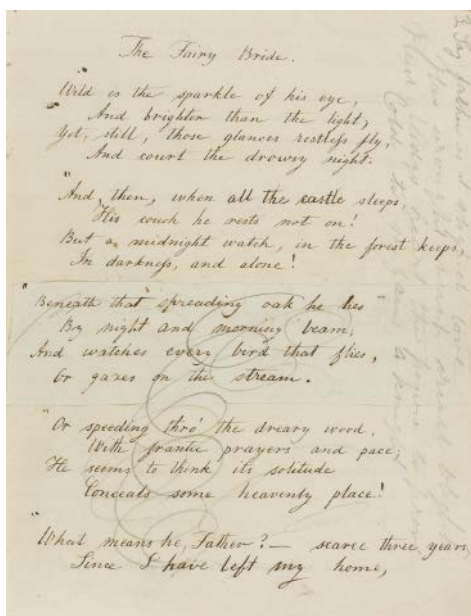 The Fairy Bride.
"Wild is the sparkle of his eye,
And brighter than the light;
Yet, still, those glances restless fly,
And court the drowsy night.
"And, then, when all the castle sleeps,
His couch he rests not on!
But a midnight watch, in the forest keeps,
In darkness, and alone!
"Beneath that spreading oak he lies
By night and morning beam;
And watches every bird that flies,
Or gazes on the stream.
"Or speeding thro' the dreary wood,
With frantic prayers and pace;
He seems to think its solitude
Conceals some heavenly place!
"What means he, Father? — scarce three years,
Since I have left my home,